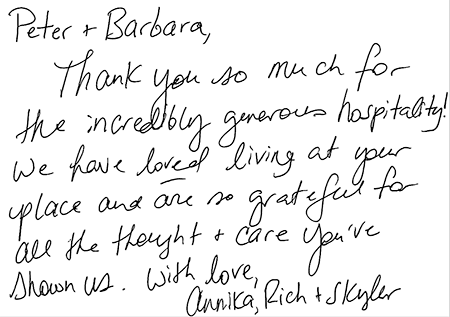 Peter + Barbara,
Thank you so much for
the incredibly generous hospitality!
We have loved living at your
place and are so grateful for
all the thought + care you've
shown us. With love,
Annika, Rich + Skyler